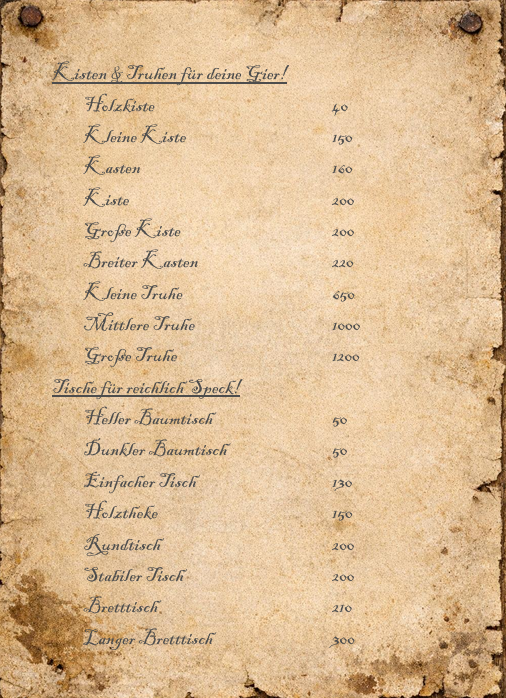 Kisten & Truhen für deine Gier!
Holzkiste 40
Kleine Kiste 150
Kasten 160
Kiste 200
Große Kiste 200
Breiter Kasten 220
Kleine Truhe 650
Mittlere Truhe 1000
Große Truhe 1200
Tische für reichlich Speck!
Heller Baumtisch 50
Dunkler Baumtisch 50
Einfacher Tisch 130
Holztheke 150
Rundtisch 200
Stabiler Tisch 200
Bretttisch 210
Langer Bretttisch 300